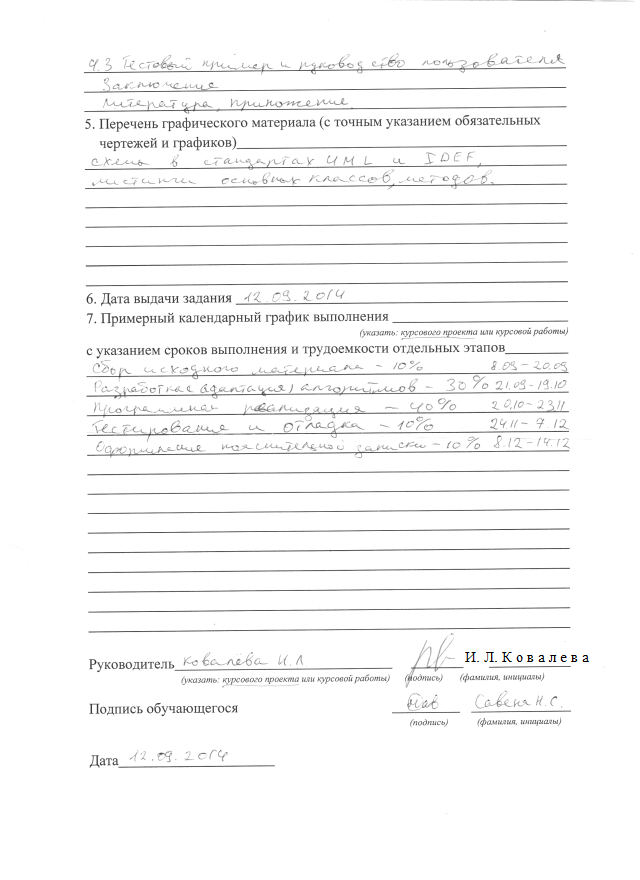 4.3 Тестовый пример и руководство пользователя
Заключение
Литература, приложение
5. Перечень графического материала (с точным указанием обязательных
чертежей и графиков)
схемы в стандартах UML и IDEF,
листинги основных классов, методов.
6. Дата выдачи задания 12.09.2014
7. Примерный календарный график выполнения
(указать: курсового проекта или курсовой работы)
с указанием сроков выполнения и трудоемкости отдельных этапов
Сбор исходного материала – 10% 8.09 – 20.09
Разработка (адаптация) алгоритмов – 30% 21.09-19.10
Программная реализация – 40% 20.10-23.11
Тестирование и отладка – 10% 24.11 – 7.12
Оформление пояснительной записки – 10% 8.12 – 14.12
Руководитель Ковалёва И.Л И. Л. Ковалева
(указать: курсового проекта или курсовой работы) (подпись) (фамилия, инициалы)
Подпись обучающегося Н.С.
(подпись) (фамилия, инициалы)
Дата 12.09.2014